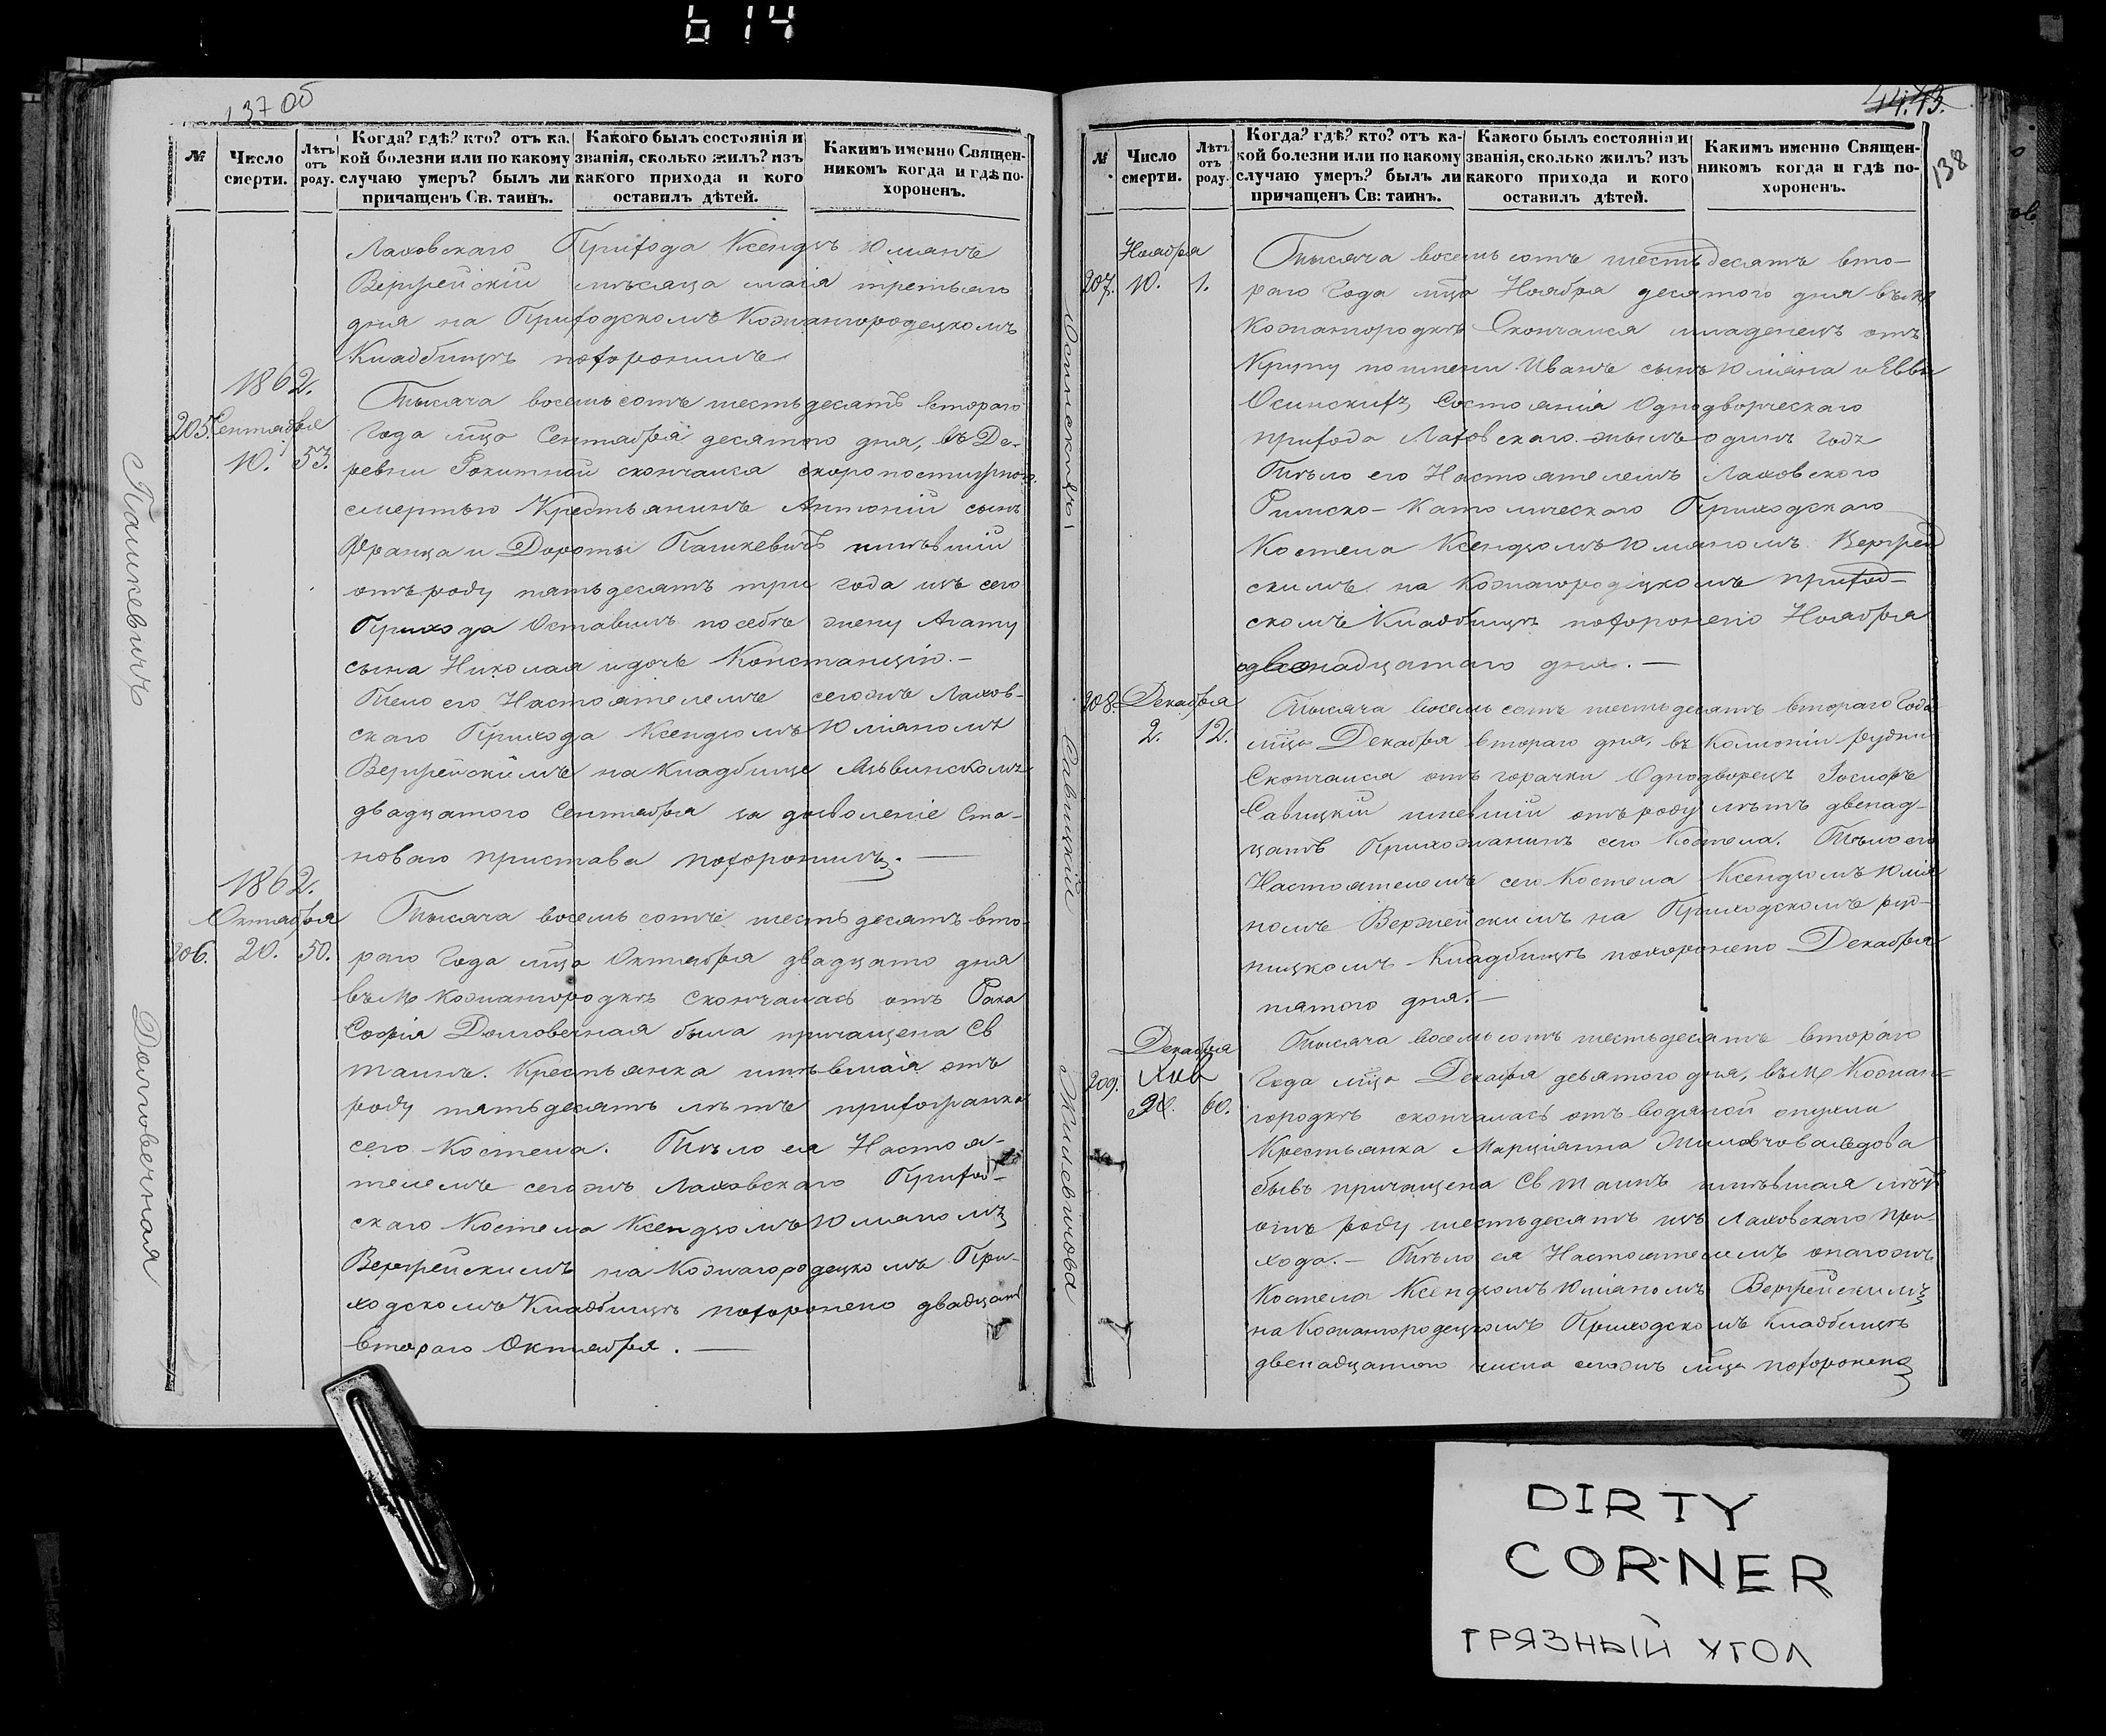 614
137 об
№
Число смерти.
Лѣтъ отъ роду.
Когда? гдѣ? кто? отъ ка-
кой болезни или по какому
случаю умеръ? былъ ли
причащенъ Св. таинъ.
Какого былъ состоянія и
званія, сколько жилъ? изъ
какого прихода и кого
оставилъ дѣтей.
Какимъ именно Священ-
никомъ когда и гдѣ по-
хороненъ.
Лаховскаго Прихода Ксендзъ Юліанъ
Вержейскій мѣсяца маія третьяго
дня на Приходскомъ Кожангородецкомъ
Кладбищѣ похоронилъ
Пашкевичъ
1862.
205. Сентября
10. 53.
Тысяча восемь сотъ шестьдесятъ втораго
Года мца Сентября десятого дня, въ Де-
ревни Рокитной скончался скоропостижною
смертью Крестьянинъ Антоній сынъ
Франца и Дороты Пашкевичъ имѣвшій
отъ роду пятьдесятъ три года изъ сего
Прихода Оставилъ по себѣ жену Агату
сына Николая и дочь Констанцію.—
Тело его Настоятелемъ сегожъ Лахов-
скаго Прихода Ксендзомъ Юліаномъ
Вержейскимъ на Кладбище
двадцатого Сентября за дозволеніе Ста-
новаго пристава похоронилъ.—
Долговечная
1862.
Октября
206. 20. 50.
Тысяча восемь сотъ шестьдесятъ вто-
раго Года мца Октября двадцато дня
въ М Кожангородкѣ Скончалась отъ Рака
Софія Долговечная была причащена Св
таинъ. Крестьянка имѣвшая отъ
роду пятьдесятъ лѣтъ прихожанка
сего Костела. Тѣло ея Настоя-
телемъ сегожъ Лаховскаго Приход-
скаго Костела Ксендзомъ Юліаномъ
Вержейскимъ на Кожагородецкомъ При-
ходскомъ Кладбищѣ похоронено двадцать
втораго Октября.—
138
№
Число смерти.
Лѣтъ отъ роду.
Когда? гдѣ? кто? отъ ка-
кой болезни или по какому
случаю умеръ? былъ ли
причащенъ Св: таинъ.
Какого былъ состоянія и
званія, сколько жилъ? изъ
какого прихода и кого
оставилъ дѣтей.
Какимъ именно Священ-
никомъ когда и гдѣ по-
хороненъ.
Ноября
207. 10. 1.
Тысяча восемь сотъ шестьдесятъ вто-
раго Года мца Ноября десятого дня въ М
Кожангородкѣ Скончался младенецъ отъ
Крупу по имени Иванъ сынъ Юліана и Еввы
Осинскихъ Состоянія Однодворческаго
прихода Лаховскаго жилъ одинъ годъ
Тѣло его Настоятелемъ Лаховского
Римско-Католическаго Приходскаго
Костела Ксендзомъ Юліаномъ Вержей
скимъ на Кожагородецкомъ приход-
скомъ Кладбищѣ похоронено Ноября
двенадцатаго дня.—
Савицкій
208. Декабря
2. 12.
Тысяча восемь сотъ шестьдесятъ втораго Года
мца Декабря втораго дня, въ Колоніи Рудни
Скончался отъ горячки Однодворецъ
Савицкій имевшій отъ роду лѣтъ двенад-
цать Прихожанинъ сего Костела. Тѣло его
Настоятелемъ сего Костела Ксендзомъ Юліа
номъ Вержейскимъ на Приходскомъ руд-
ницкомъ Кладбищѣ похоронено Декабря
пятого дня.—
Декабря
209. 60.
Тысяча восемь сотъ шестьдесятъ втораго
Года мца Декабря девятого дня, въ М Кожан-
городкѣ скончалась отъ водяной опухли
Крестьянка Марціанна
бывъ причащена Св таинъ имѣвшая лѣтъ
отъ роду шестьдесятъ изъ Лаховскаго при-
хода.— Тѣло ея Настоятелемъ онагожъ
Костела Ксендзомъ Юліаномъ Вержейскимъ
на Кожангородецкомъ Приходскомъ Кладбищѣ
двенадцатого числа сегожъ мца похоронено
DIRTY
CORNER
ГРЯЗНЫЙ УГОЛ